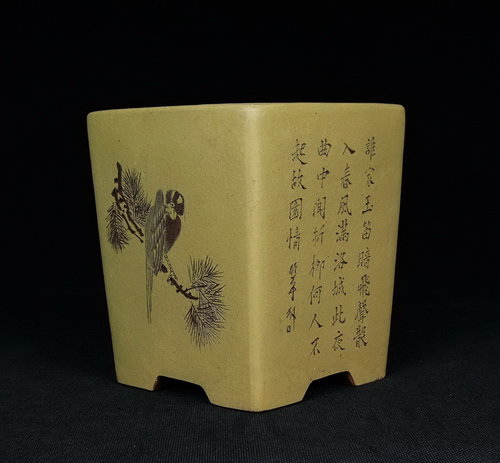 誰家玉笛暗飛聲散
入春風滿洛城此夜
曲中聞折柳何人不
起故園情